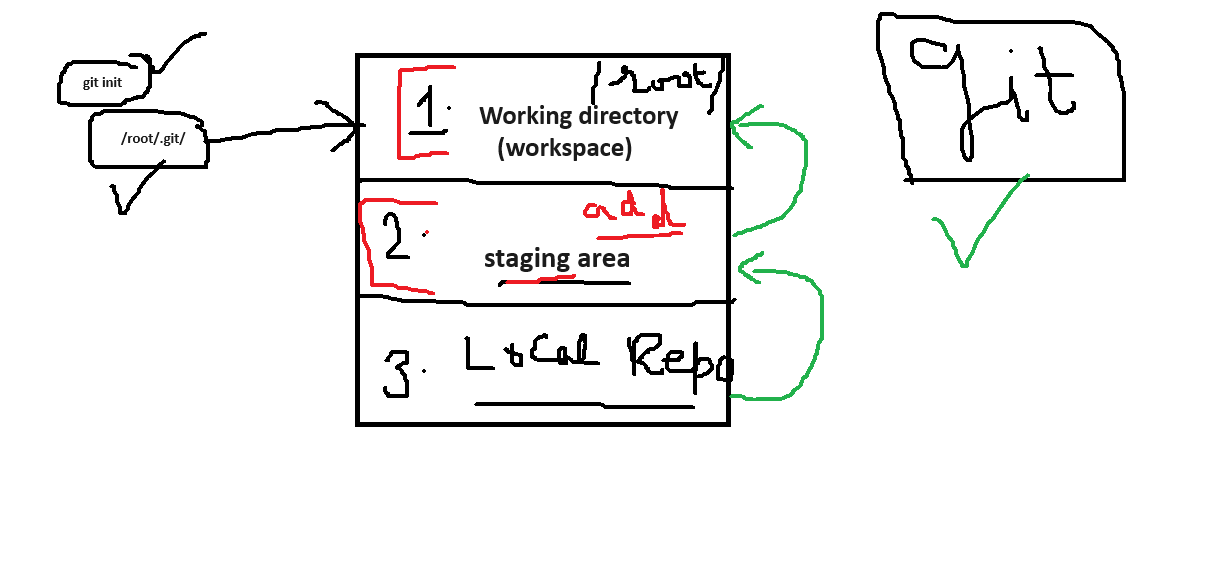 git init
/root/.git/
1.
/root/
Working directory
(workspace)
2.
add
staging area
3. Local Repo
Git